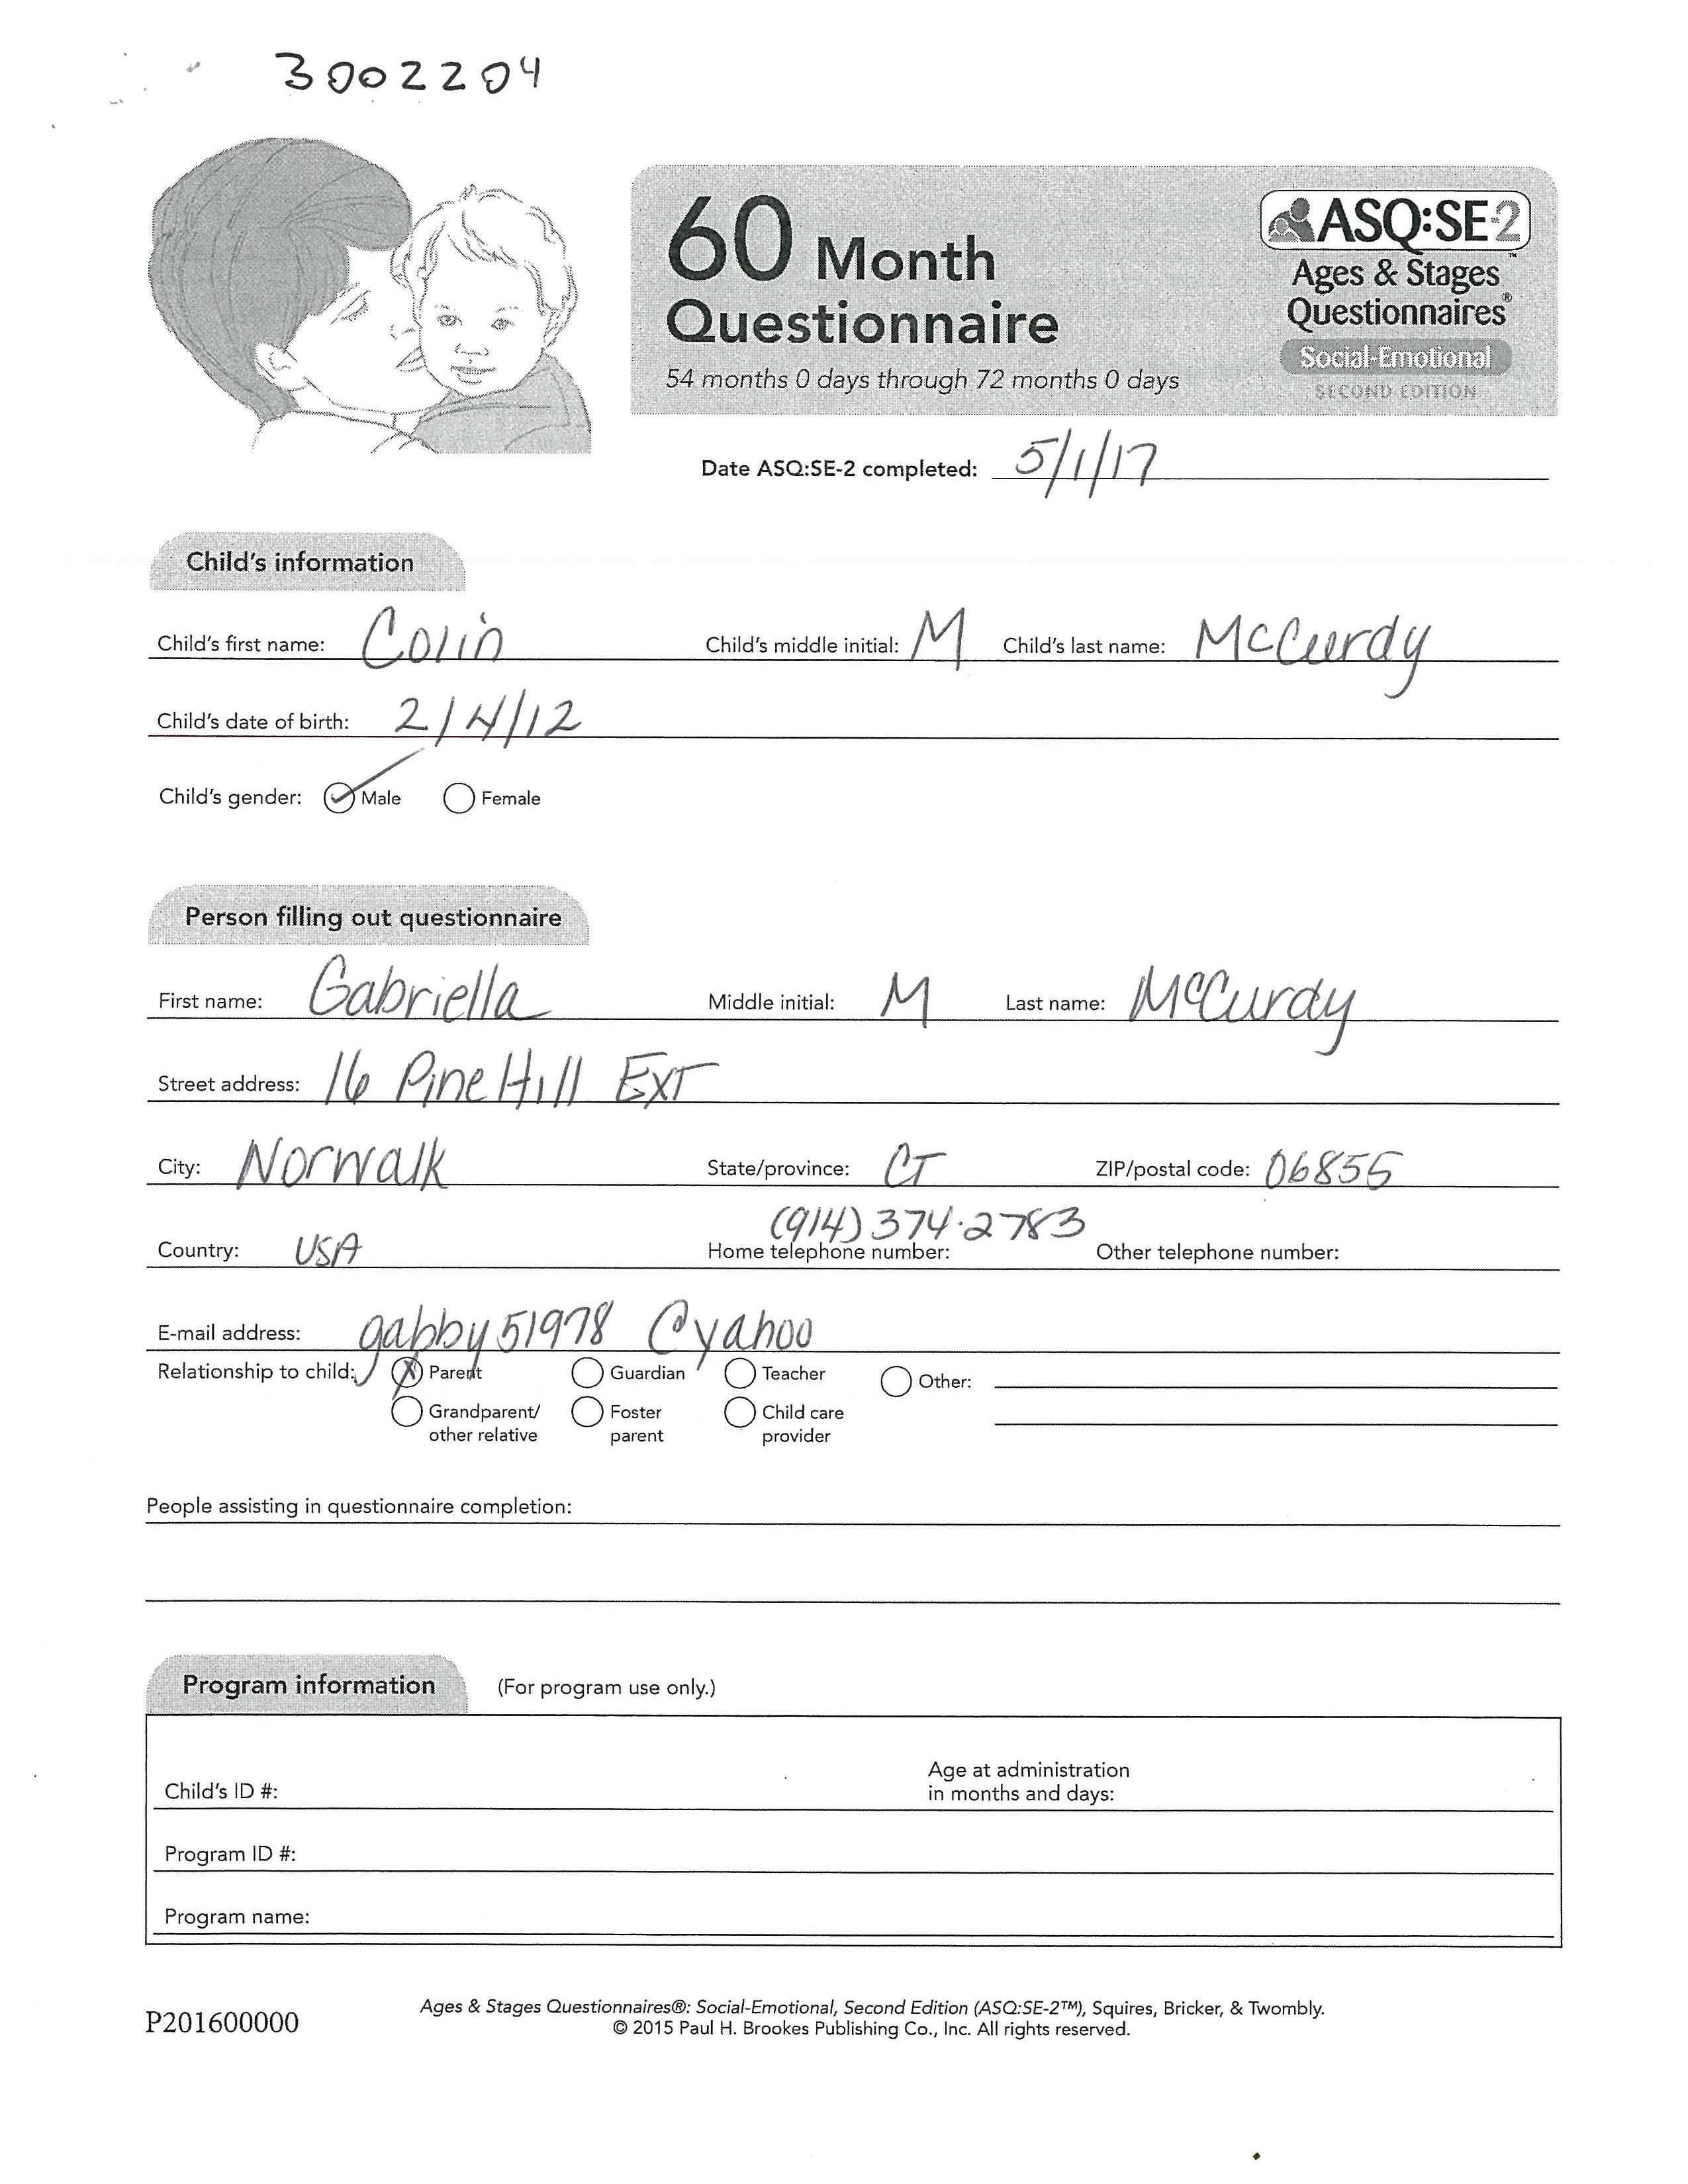 3002204
60 Month
Questionnaire
54 months 0 days through 72 months 0 days
ASQ:SE-2™
Ages & Stages
Questionnaires®
Social-Emotional
SECOND EDITION
Date ASQ:SE-2 completed: 5/1/17
Child's information
Child's first name: Colin Child's middle initial: M Child's last name: McCurdy
Child's date of birth: 2/4/12
Child's gender: Male Female
Person filling out questionnaire
First name: Gabriella Middle initial: M Last name: McCurdy
Street address: 16 Pine Hill EXT
City: Norwalk State/province: CT ZIP/postal code: 06855
Country: USA Home telephone number: (914) 374·2783 Other telephone number:
E-mail address: gabby51978 @yahoo
Relationship to child: Parent Guardian Teacher Other:
Grandparent/ Foster Child care
other relative parent provider
People assisting in questionnaire completion:
Program information (For program use only.)
Age at administration
Child's ID #: in months and days:
Program ID #:
Program name:
P201600000
Ages & Stages Questionnaires®: Social-Emotional, Second Edition (ASQ:SE-2™), Squires, Bricker, & Twombly.
© 2015 Paul H. Brookes Publishing Co., Inc. All rights reserved.